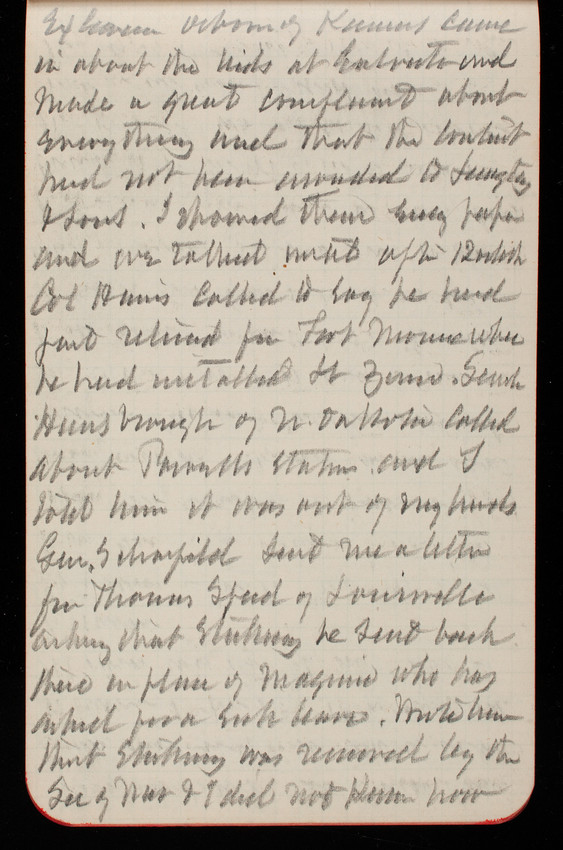 Ex Governor Osborn of Kansas came
in about the bids at Galveston and
made a great complaint about
everything and that the contract
had not been awarded to
& Sons. I showed them every paper
and we talked until after 12 oclock
Col Hains called to say he had
just returned from Fort Monroe where
he had installed Lt. Senator
Hansbrough of N. Dakota called
about Powells station and I
told him it was out of my hands
Gen. Schofield sent me a letter
from Thomas Speed of Louisville
asking that Stickney be sent back
there in place of Maguire who has
asked for a sick leave. Wrote him
that Stickney was removed by the
Sec of War & I did not know how